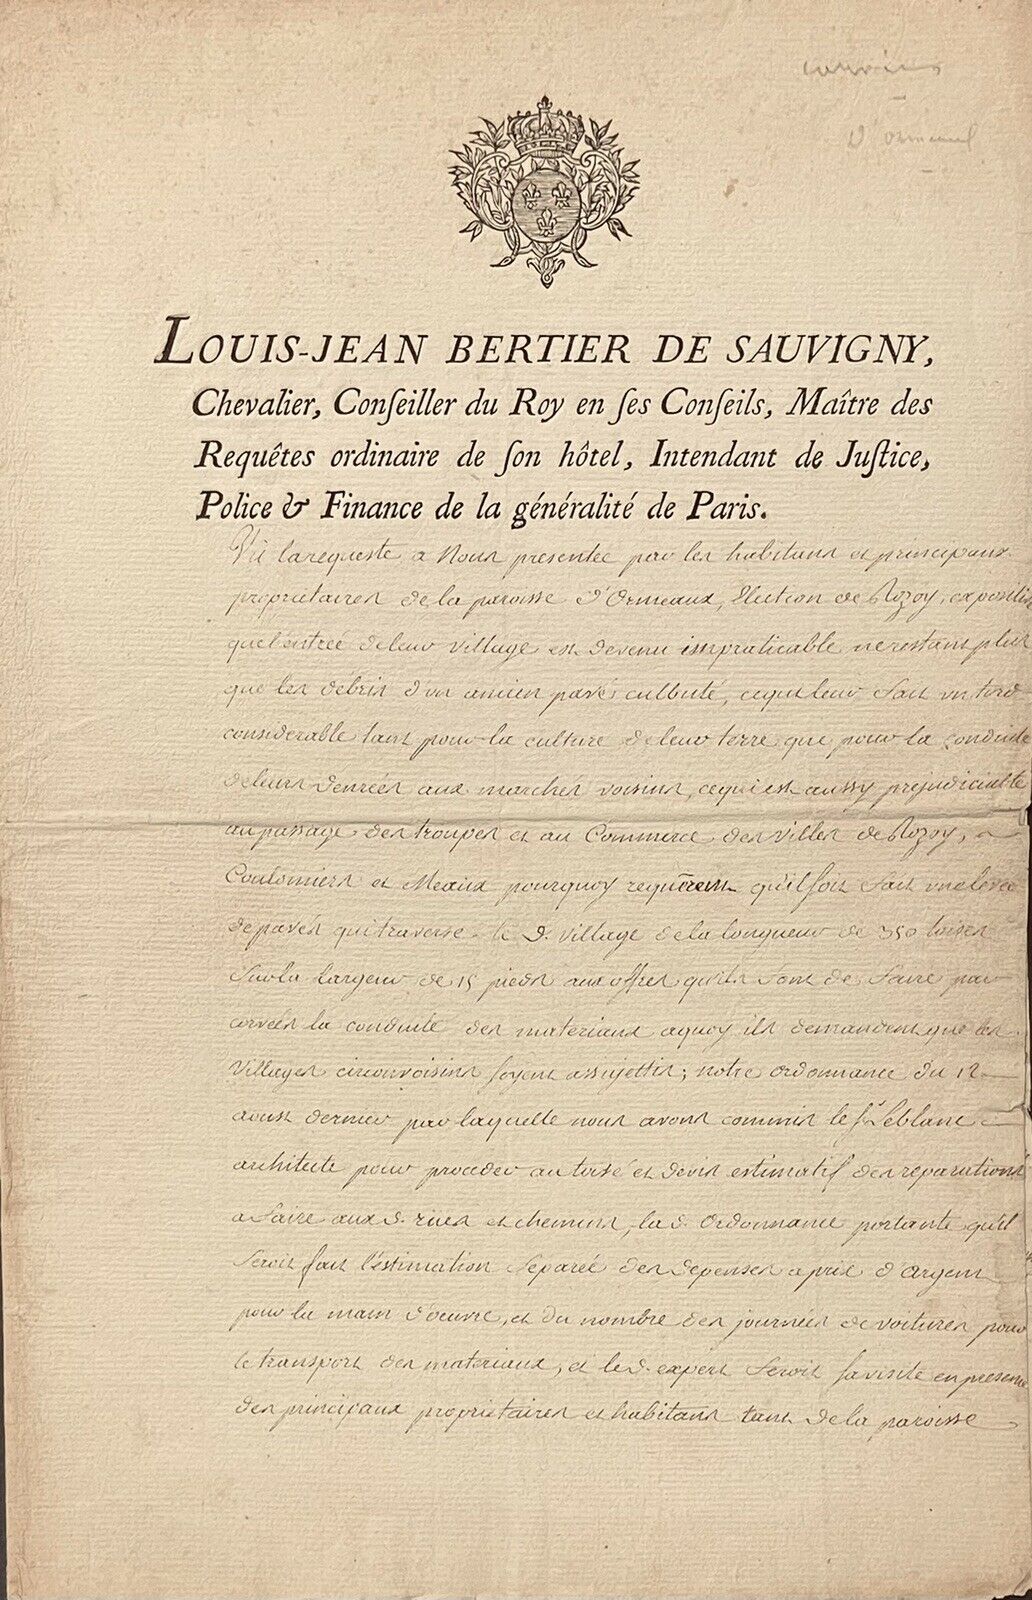 d'ormeaux
LOUIS-JEAN BERTIER DE SAUVIGNY,
Chevalier, Conſeiller du Roy en ſes Conſeils, Maître des
Requêtes ordinaire de ſon hôtel, Intendant de Juſtice,
Police & Finance de la généralité de Paris.
Vû la requeste a Nous presentée par les habitans et principaux
proprietaires de la paroisse d'Ormeaux, Election de Rozoy, expositive
que l'entrée de leur village est devenu impraticable ne restans plus
que les debris d'un ancien pavé culbuté, ce qui leur fait un tord
considerable tant pour la culture de leur terre que pour la conduite
de leurs denrées aux marchés voisins, ce qui est aussy prejudiciable
au passage des troupes et au Commerce des villes de Rozoy,
Coulomiers et Meaux pourquoy requerent qu'il soit fait une levée
de pavés qui traverse le d. village de la longueur de 350 toises
sur la largeur de 15 pieds aux offres qu'ils font de faire par
corvées la conduite des materiaux a quoy ils demandent que les
villages circonvoisins soyent assujettis; notre ordonnance du 12
aoust dernier par laquelle nous avons commis le Sr. Leblanc
architecte pour proceder au toisé et devis estimatif des reparations
a faire aux d. rües et chemins, la d. Ordonnance portante qu'il
seroit fait l'estimation separée des depenses a prix d'argent
pour la main d'oeuvre, et du nombre des journées de voitures pour
le transport des materiaux, et le d. expert feroit sa visite en presence
des principaux proprietaires et habitans tant de la paroisse